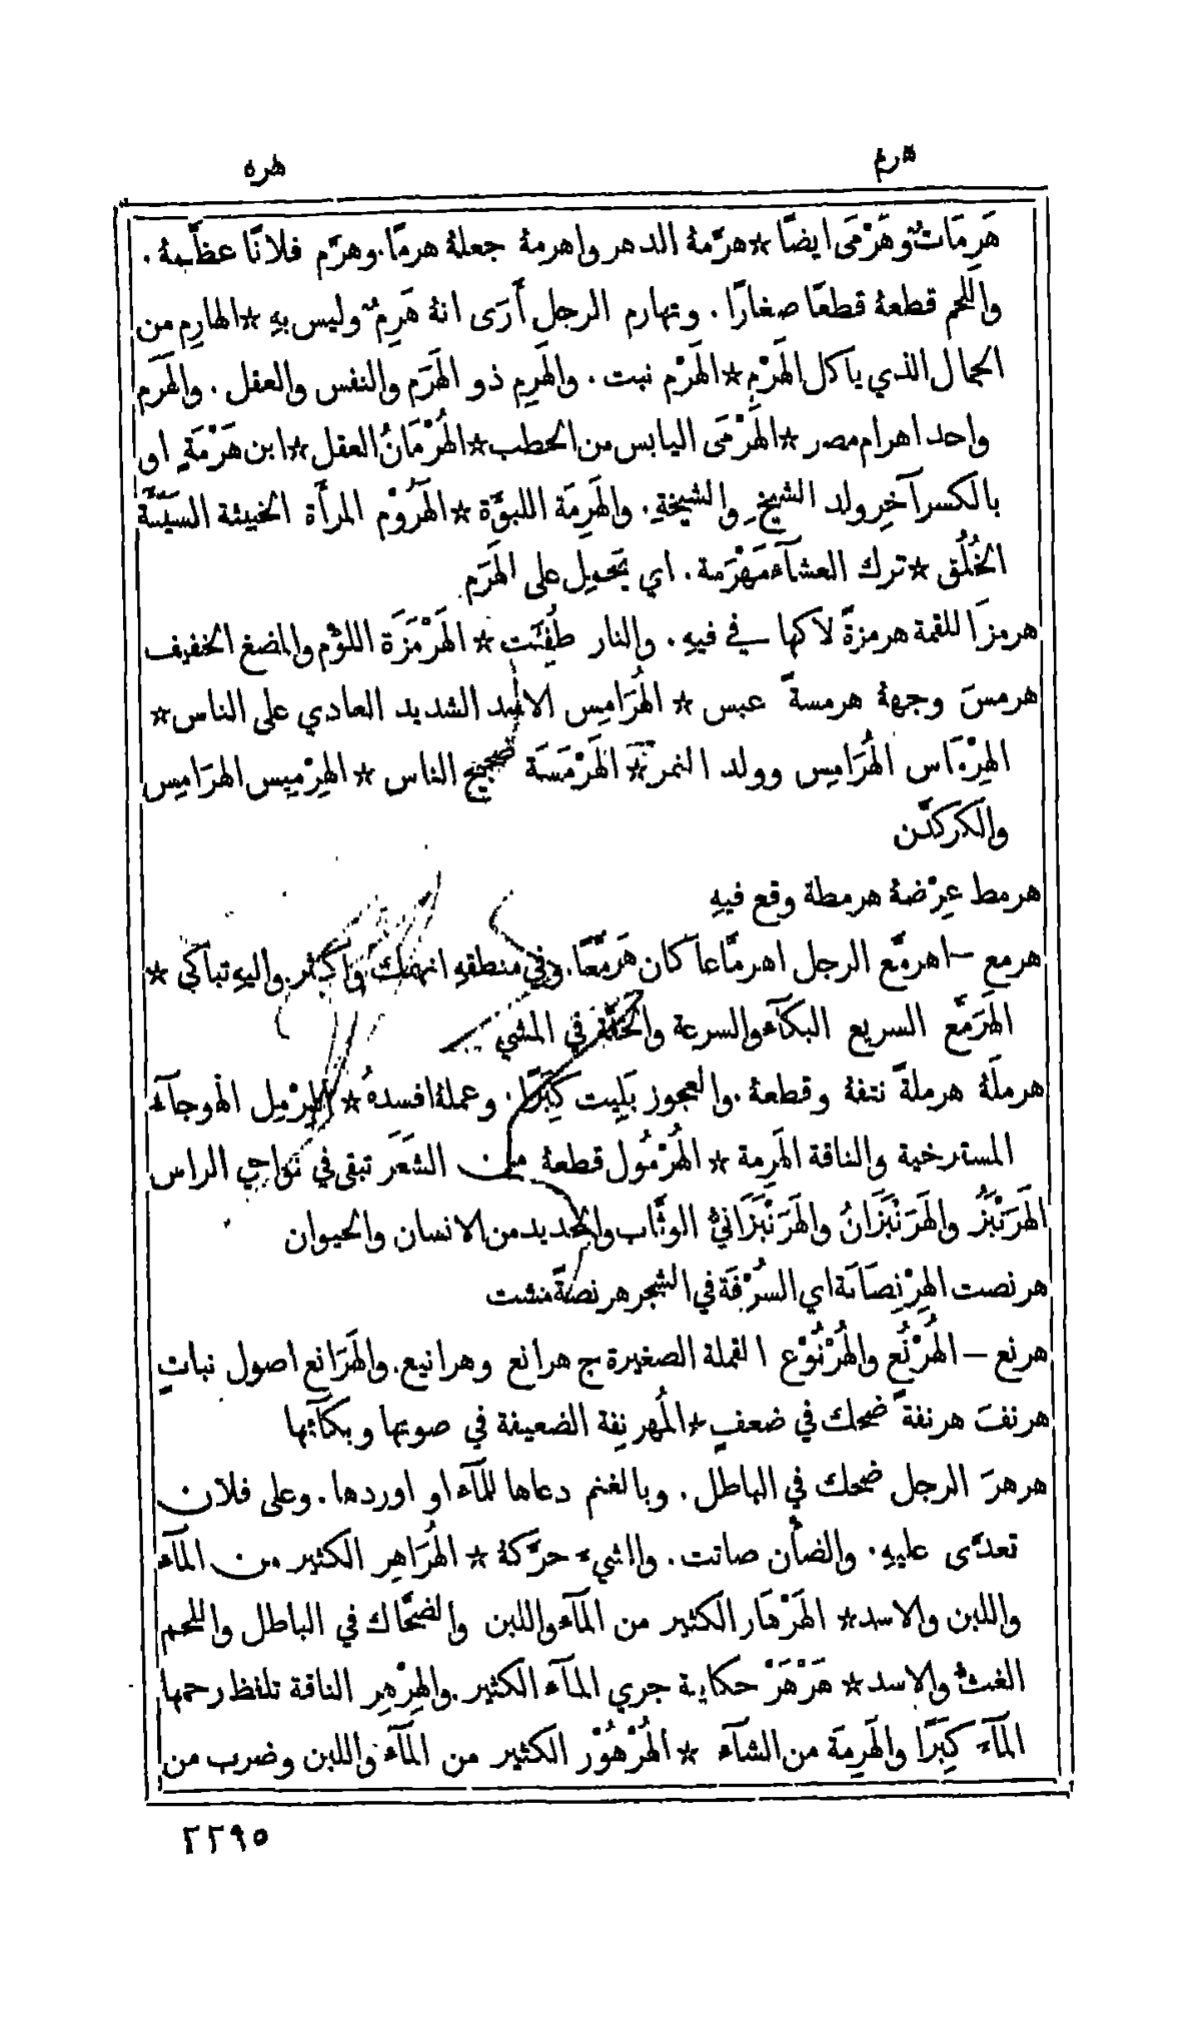 هرم
هره
هَرِمَاتٌ وهَرْمَى ايضًا * هرَّمهُ الدهر واهرمهُ جعلهُ هرمًا. وهرَّم فلانًا عظَّمهُ.
واللَّحمَ قطعهُ قطعًا صغارًا. وتهارم الرجل أَرَى انهُ هَرِمٌ وليس بهِ * الهارِم من
الجمال الذي ياكل الهَرْمِ * الهَرْم نبت. والهَرِم ذو الهَرَم والنفس والعقل. والهَرَم
واحد اهرام مصر * الهَرْمَى اليابس من الحطب * الهُرْمَانُ العقل * ابن هَرْمَةِ او
بالكسر آخِر ولد الشيخِ والشيخةِ. والهَرِمَة اللبوَّة * الهَرُوْم المرأَة الخبيثة السيِّئَة
الخُلُق * ترك العشآء مَهْرَمة. اي يَحْمِل على الهَرَم
هرمزَ اللقمة هرمزةً لاكها في فيهِ. والنار طَفِئَت * الهَرْمَزَة اللؤم والمضغ الخفيف
هرمسَ وجههُ هرمسةً عبس * الهُرَامِس الاسد الشديد العادي على الناس *
الهِرْمَاس الهُرَامِس وولد النمر * الهَرْمَسَة ضجيج الناس * الهِرْمِيس الهرَامِس
والكركدَّن
هرمط عِرْضهُ هرمطة وقع فيهِ
هرمع – اهرمَّع الرجل اهرمَّاعًا كان هَرَمَّعًا. وفي منطقهِ انهمك واكثر. واليهِ تباكى *
الهَرَمَّع السريع البكآء والسرعة والخفَّة في المشي
هرملَهُ هرملةً نتفهُ وقطعهُ. والعجوز بَلِيت كِبَرًا. وعملهُ افسدهُ * الهِرْمِل الهوجآء
المسترخية والناقة الهَرِمة * الهُرْمُول قطعة من الشَعَر تبقى في نواحي الراس
الهَرَنْبَزُ والهَرَنْبَزَانُ والهَرَنْبَزَانيُّ الوثَّاب والحديد من الانسان والحيوان
هرنصت الهِرْنِصَانَة اي السُرْفَة في الشجر هرنصةً مشت
هرنع – الهُرْنُع والهُرْنُوْع القملة الصغيرة ج هرانع وهرانيع. والهَرَانِع اصول نباتٍ
هرنفَ هرنفةً ضحك في ضعفٍ * المُهرنِفة الضعيفة في صوتها وبكآئها
هرهرَ الرجل ضحك في الباطل. وبالغنم دعاها للمآء او اوردها. وعلى فلان
تعدَّى عليهِ. والضأن صاتت. والشيءَ حرَّكهُ * الهُرَاهِر الكثير من المآء
واللبن والاسد * الهَرْهَار الكثير من المآء واللبن والضحَّاك في الباطل واللحم
الغثّ والاسد * هَرْهَرْ حكاية جري المآء الكثير. والهِرْهِر الناقة تلفظ رحمها
المآء كِبَرًا والهَرِمَة من الشآء * الهُرْهُوْر الكثير من المآء واللبن وضرب من
٢٢٩٥